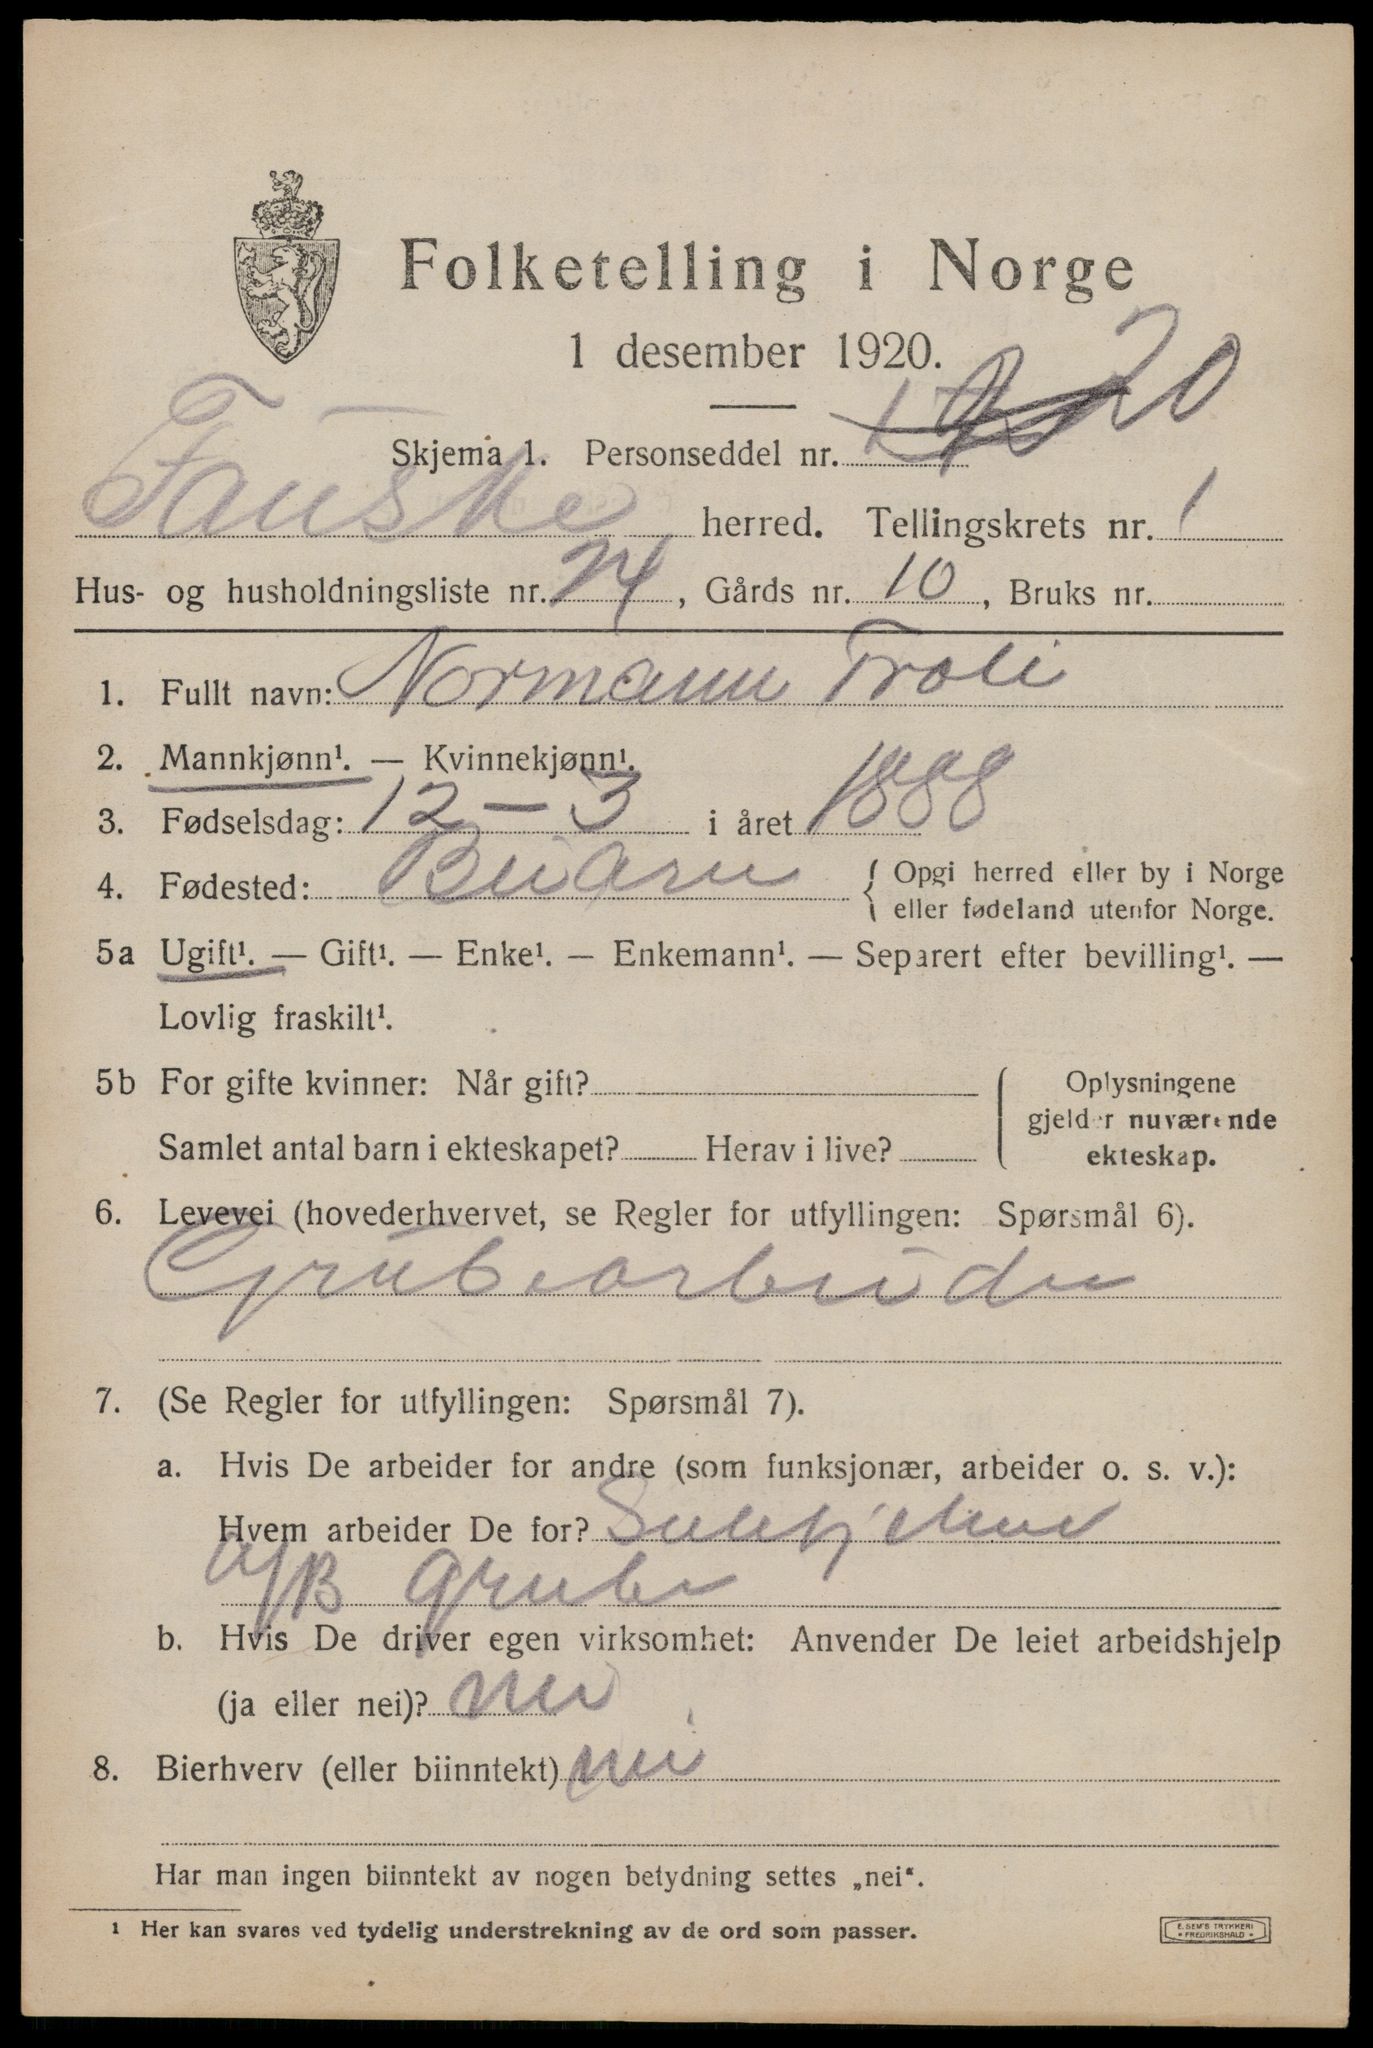 Folketelling i Norge
1 desember 1920.
Skjema 1. Personseddel nr. 20
Fauske herred. Tellingskrets nr. 1
Hus- og husholdningsliste nr. 24, Gårds nr. 10, Bruks nr.
1. Fullt navn: Normann Troli
2. Mannkjønn¹. — Kvinnekjønn¹.
3. Fødselsdag: 12 - 3 i året 1888
4. Fødested: Beiarn { Opgi herred eller by i Norge
eller fødeland utenfor Norge.
5a Ugift¹. — Gift¹. — Enke¹. — Enkemann¹. — Separert efter bevilling¹. —
Lovlig fraskilt¹.
5b For gifte kvinner: Når gift? Oplysningene
gjelder nuværende
Samlet antal barn i ekteskapet? Herav i live? ekteskap.
6. Levevei (hovederhvervet, se Regler for utfyllingen: Spørsmål 6).
Grubearbeider
7. (Se Regler for utfyllingen: Spørsmål 7).
a. Hvis De arbeider for andre (som funksjonær, arbeider o. s. v.):
Hvem arbeider De for? Sulitjelma
A/B Gruber
b. Hvis De driver egen virksomhet: Anvender De leiet arbeidshjelp
(ja eller nei)? nei
8. Bierhverv (eller biinntekt) nei
Har man ingen biinntekt av nogen betydning settes „nei“.
¹ Her kan svares ved tydelig understrekning av de ord som passer.
E. SEM'S TRYKKERI
• FREDRIKSHALD •